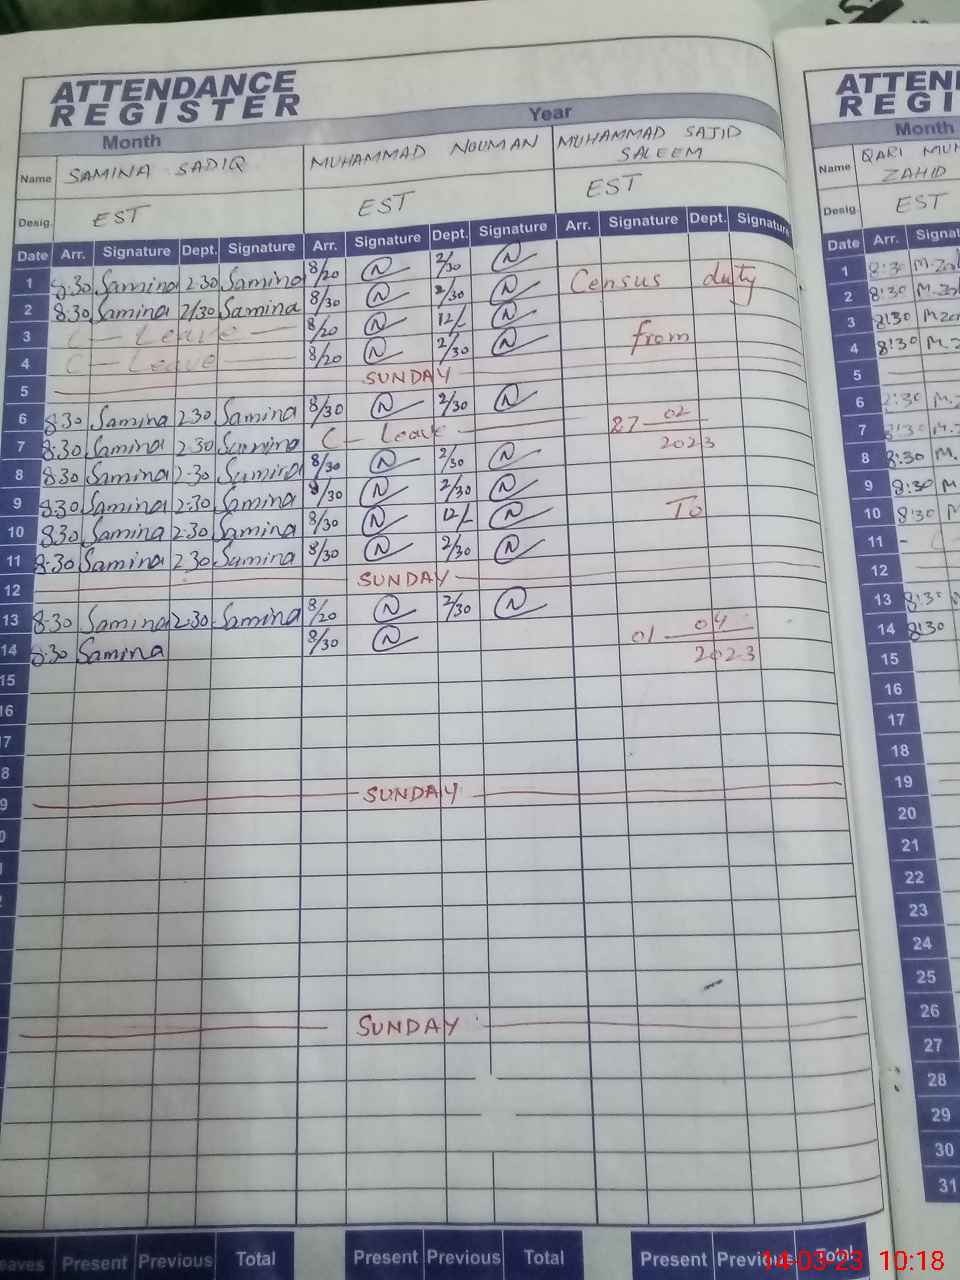 ATTENDANCE
REGISTER
Month Year
Name SAMINA SADIQ MUHAMMAD NOUMAN MUHAMMAD SAJID SALEEM
Desig. EST EST EST
Date Arr. Signature Dept. Signature Arr. Signature Dept. Signature Arr. Signature Dept. Signature
1 8:30 Samina 2:30 Samina 8/20 N 2/30 N Census duty
2 8:30 Samina 2/30 Samina 8/30 N 2/30 N
3 C — Leave — 8/20 N 12/- N from
4 C — Leave 8/20 N 2/30 N
5 SUNDAY
6 8:30 Samina 2:30 Samina 8/30 N 2/30 N 27 — 02
7 8:30 Samina 2:30 Samina C — Leave — 2023
8 8:30 Samina 2:30 Samina 8/30 N 2/30 N
9 8:30 Samina 2:30 Samina 8/30 N 2/30 N
10 8:30 Samina 2:30 Samina 8/30 N 12/- N To
11 8:30 Samina 2:30 Samina 8/30 N 2/30 N
12 SUNDAY
13 8:30 Samina 2:30 Samina 8/20 N 2/30 N
14 8:30 Samina 8/30 N 01 — 04
2023
15
16
17
8
9 SUNDAY
0
SUNDAY
eaves Present Previous Total Present Previous Total Present Previous Total
ATTEN
REGI
Month
Name QARI MUH
ZAHID
Desig. EST
Date Arr. Signat
1 8:30
2 8:30
3 8:30
4 8:30 M.
5
6 M.
7 8:30 M.
8 8:30 M.
9 8:30 M
10 8:30 M
11 -
12
13 8:3
14 8:30
15
16
17
18
19
20
21
22
23
24
25
26
27
28
29
30
31
14-03-23 10:18